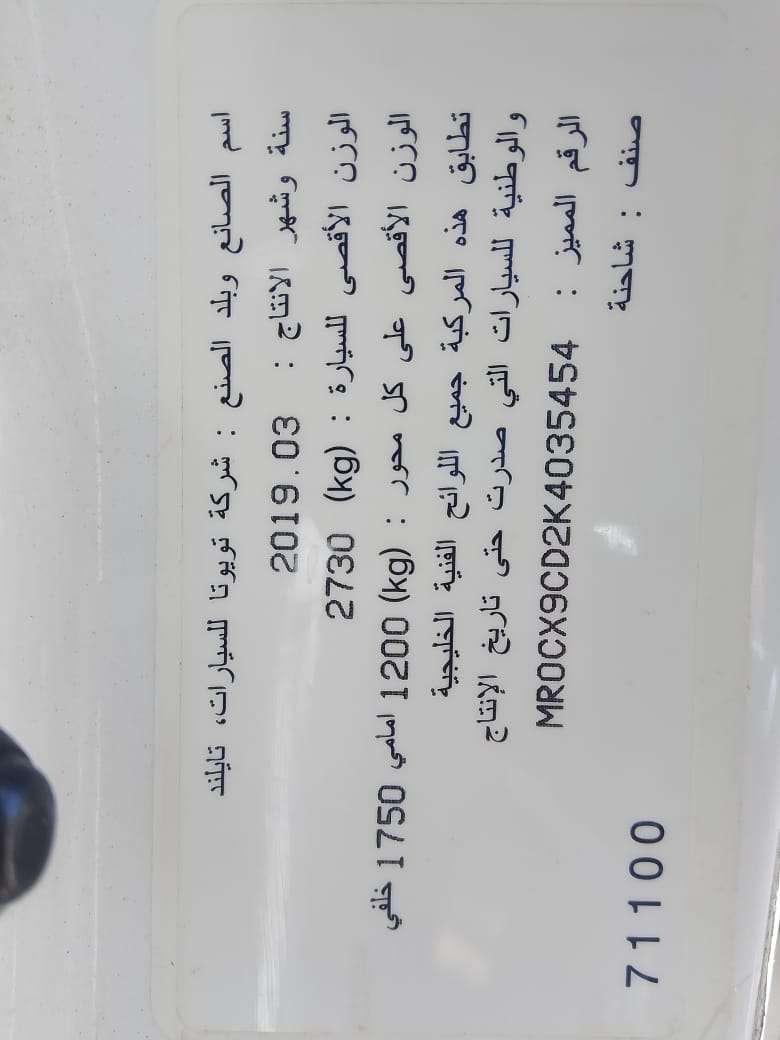 اسم الصانع وبلد الصنع : شركة تويوتا للسيارات، تايلند
سنة وشهر الانتاج : 2019.03
الوزن الأقصى للسيارة : (kg) 2730
الوزن الأقصى على كل محور : (kg) 1200 امامي 1750 خلفي
تطابق هذه المركبة جميع اللوائح الفنية الخليجية
والوطنية للسيارات التي صدرت حتى تاريخ الإنتاج
الرقم المميز : MR0CX9CD2K4035454
صنف : شاحنة
71100